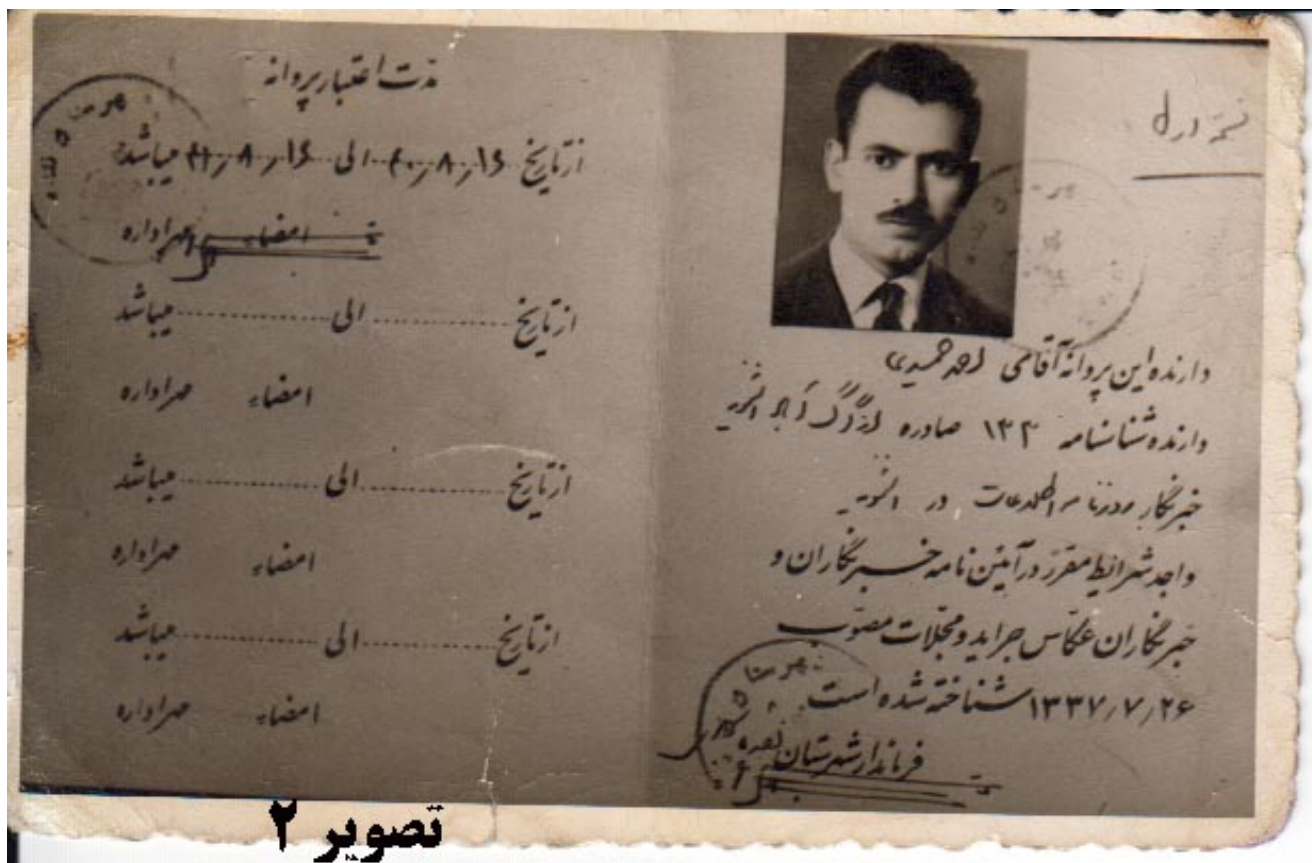 دارنده این پروانه آقای احمد حمیدی
دارنده شناسنامه ۱۳۳ صادره از
خبرنگار روزنامه اطلاعات در اشنویه
واجد شرایط مقرر در آئین نامه خبرنگاران و
خبرنگاران عکاس جراید و مجلات مصوب
۱۳۳۷٫۷٫۲۶ شناخته شده است.
فرماندار شهرستان نقده
مدت اعتبار پروانه
از تاریخ ۴۰٫۸٫۱۶ الی ۴۱٫۸٫۱۶ میباشد
امضاء مهر اداره
از تاریخ ............ الی ............ میباشد
امضاء مهر اداره
از تاریخ ............ الی ............ میباشد
امضاء مهر اداره
از تاریخ ............ الی ............ میباشد
امضاء مهر اداره
تصویر ۲